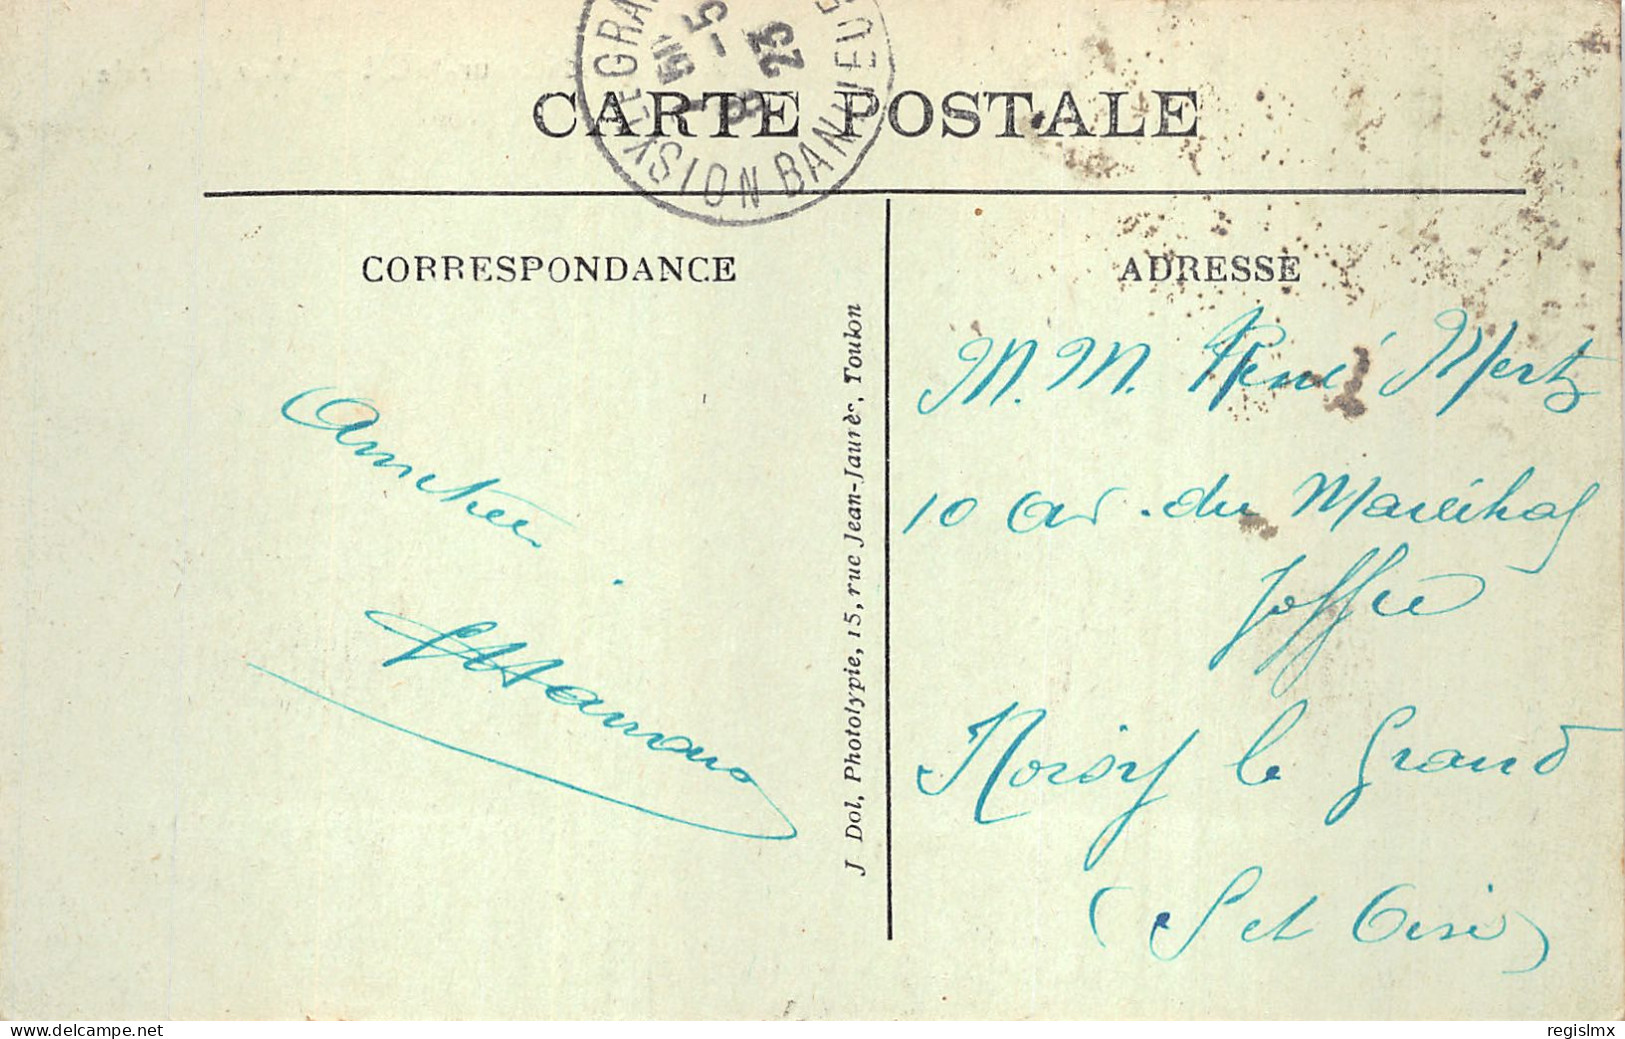 CARTE POSTALE
CORRESPONDANCE
ADRESSE
Amitiés
J Dol, Phototypie, 15, rue Jean-Jaurès, Toulon
M. M. René Mertz
10 av. du Maréchal
Joffre
Noisy le Grand
(S et Oise)
5 - 5
23
BANLIEUE
www.delcampe.net
regislmx